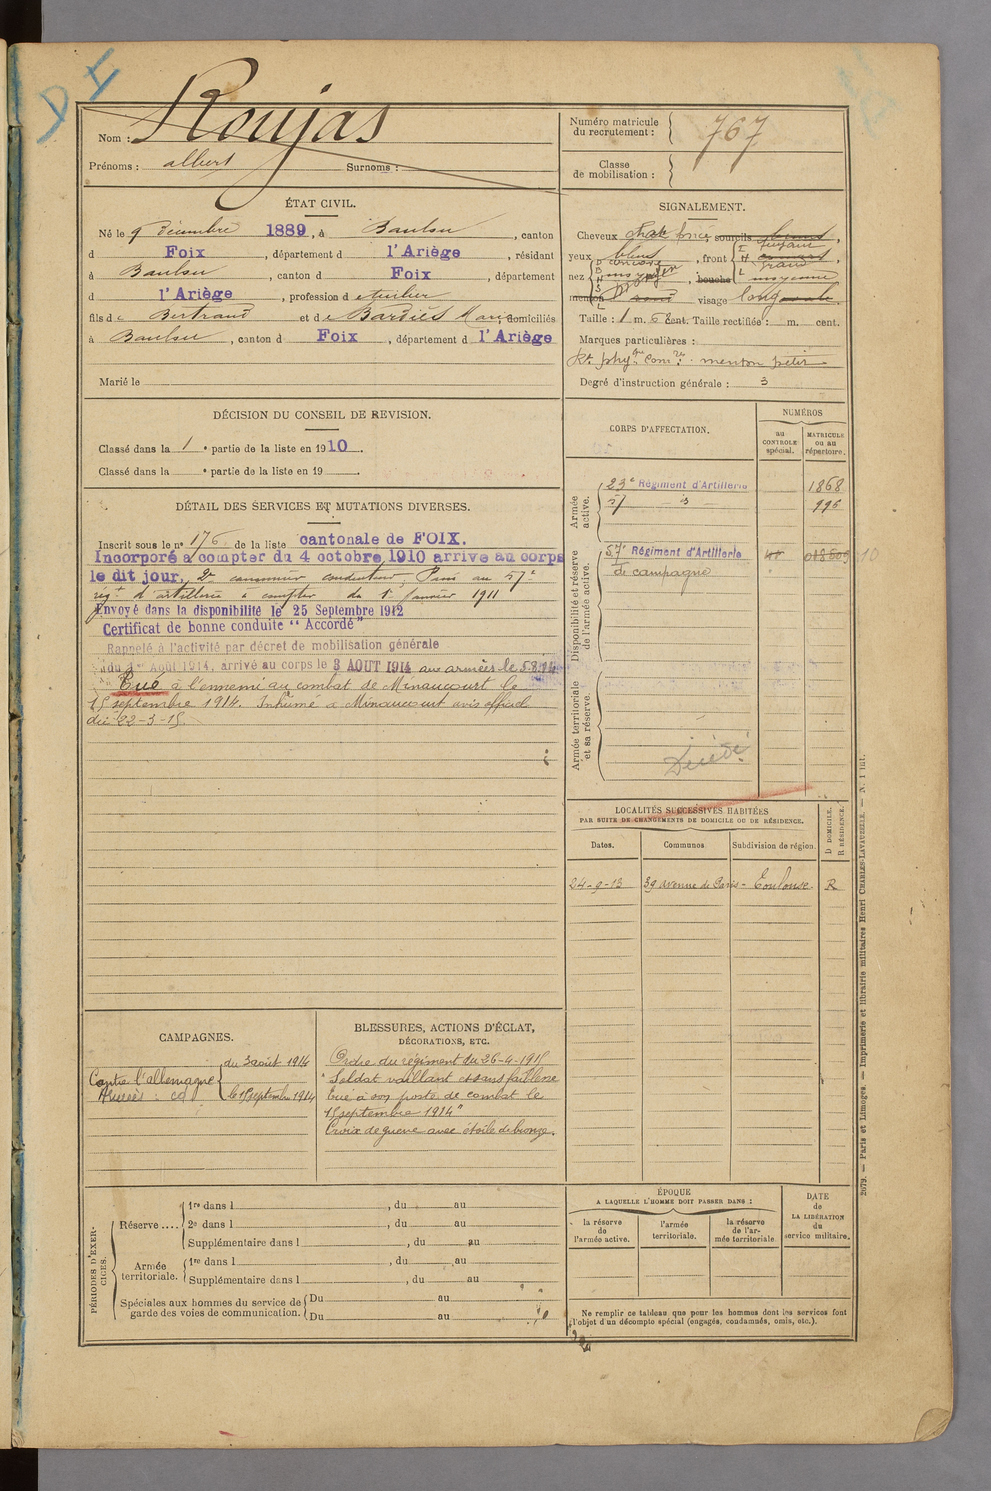 DF
Nom : Roujas
Prénoms : albert Surnoms :
Numéro matricule du recrutement : 767
Classe de mobilisation :
ÉTAT CIVIL.
Né le 9 décembre 1889, à Baulou, canton
d Foix, département d l'Ariège, résidant
à Baulou, canton d Foix, département
d l'Ariège, profession d
fils de Bertrand et de Bardies domiciliés
à Baulou, canton d Foix, département d l'Ariège
Marié le
SIGNALEMENT.
Cheveux chat foncé, sourcils bruns,
yeux bleus, front fuyant
grand
nez moyen, bouche moyenne
menton rond visage long ovale
Taille : 1 m. cent. Taille rectifiée : m. cent.
Marques particulières :
menton petit
Degré d'instruction générale : 3
DÉCISION DU CONSEIL DE REVISION.
Classé dans la 1e partie de la liste en 1910.
Classé dans la e partie de la liste en 19
DÉTAIL DES SERVICES ET MUTATIONS DIVERSES.
Inscrit sous le n° 176 de la liste cantonale de FOIX.
Incorporé à compter du 4 octobre 1910 arrive au corps
le dit jour, 2e canonnier conducteur, Passé au 57e
régt d'artillerie à compter du 1er janvier 1911
Envoyé dans la disponibilité le 25 Septembre 1912
Certificat de bonne conduite "Accordé"
Rappelé à l'activité par décret de mobilisation générale
du 1er Août 1914, arrivé au corps le 3 AOUT 1914 aux armées le 5.8.14
Tué à l'ennemi au combat de Minaucourt le
15 septembre 1914. Inhumé à Minaucourt avis officiel
du 22-3-15.
CORPS D'AFFECTATION.
NUMÉROS
au CONTROLE spécial.
MATRICULE ou au répertoire.
Armée active.
23e Régiment d'Artillerie 1868
57 - is 996
Disponibilité et réserve de l'armée active.
57e Régiment d'Artillerie
de campagne
Armée territoriale et sa réserve.
Décédé
LOCALITÉS SUCCESSIVES HABITÉES
PAR SUITE DE CHANGEMENTS DE DOMICILE OU DE RÉSIDENCE.
D DOMICILE.
R RÉSIDENCE.
Dates. Communes Subdivision de région.
24-9-13 39 avenue de Paris - Toulouse. R
CAMPAGNES.
Contre l'allemagne
Armées : CD
du 3 août 1914
le 15 septembre 1914
BLESSURES, ACTIONS D'ÉCLAT,
DÉCORATIONS, ETC.
Ordre du régiment du 26-4-1915
"Soldat vaillant et sans faiblesse
tué à son poste de combat le
15 septembre 1914"
Croix de guerre avec étoile de bronze.
PÉRIODES D'EXERCICES.
Réserve .... 1re dans l , du au
2e dans l , du au
Supplémentaire dans l , du au
Armée territoriale. 1re dans l , du au
Supplémentaire dans l , du au
Spéciales aux hommes du service de garde des voies de communication. Du au
Du au
ÉPOQUE
A LAQUELLE L'HOMME DOIT PASSER DANS :
la réserve de l'armée active.
l'armée territoriale.
la réserve de l'armée territoriale
DATE de LA LIBÉRATION du service militaire.
Ne remplir ce tableau que pour les hommes dont les services font
l'objet d'un décompte spécial (engagés, condamnés, omis, etc.).
2079. — Paris et Limoges. — Imprimerie et librairie militaires Henri CHARLES-LAVAUZELLE. — N. 1 int.